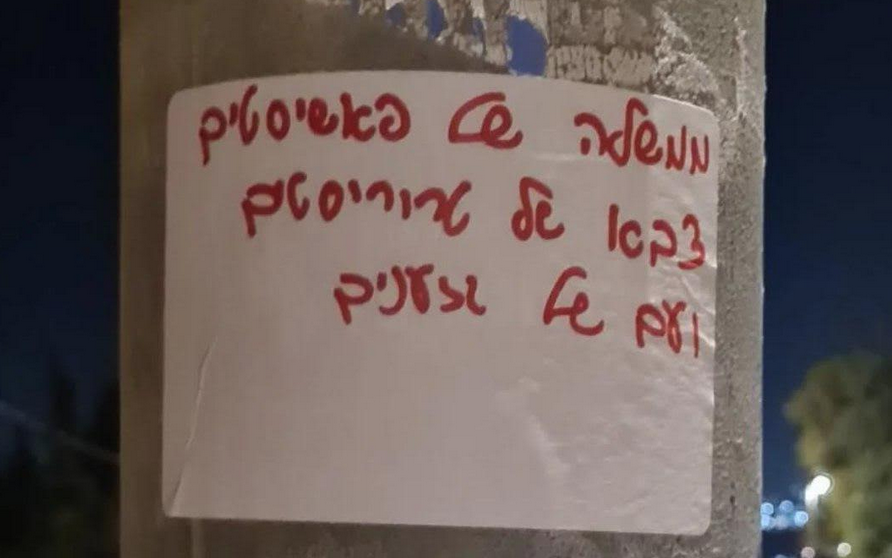 ממשלה של פאשיסטים
צבא של טרוריסטים
ועם של גזענים